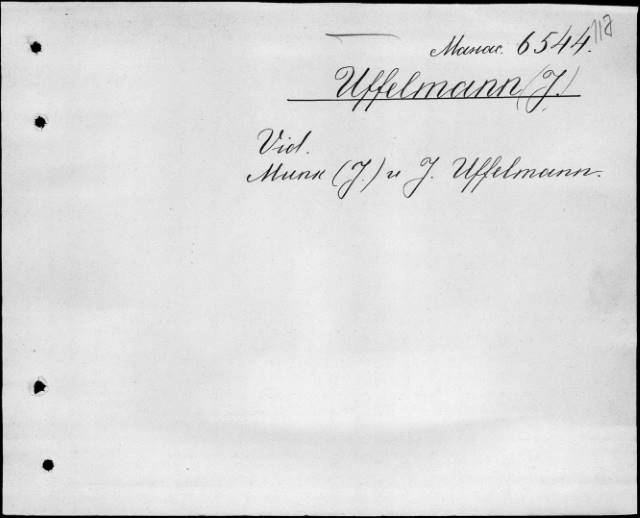 117
Manac. 6544.
Uffelmann (J.)
Vid.
Munk (J.) u J. Uffelmann.